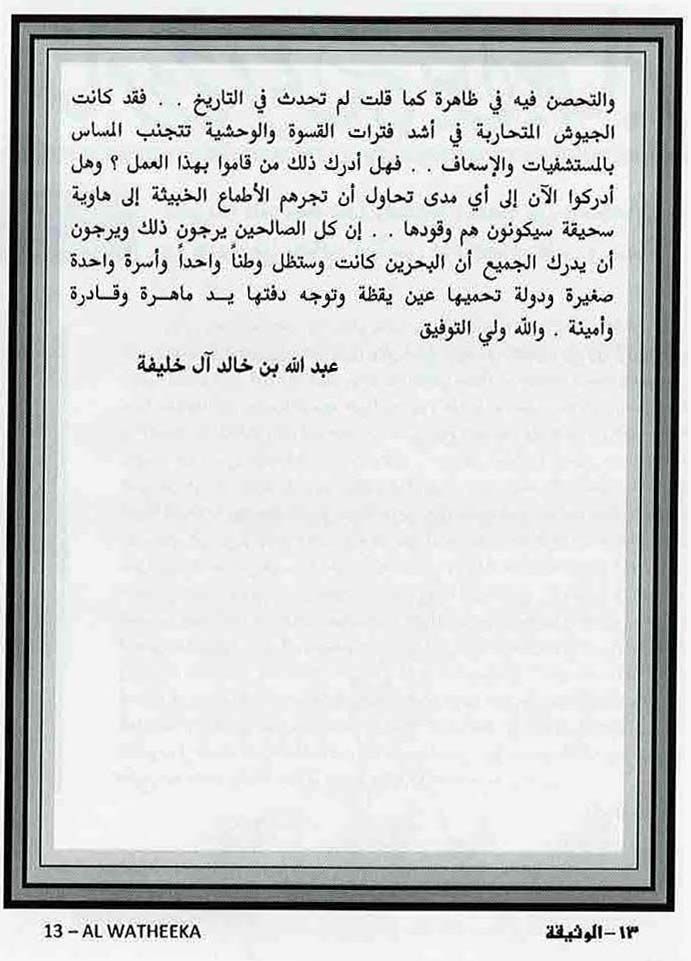 والتحصن فيه في ظاهرة كما قلت لم تحدث في التاريخ . . فقد كانت
الجيوش المتحاربة في أشد فترات القسوة والوحشية تتجنب المساس
بالمستشفيات والإسعاف . . فهل أدرك ذلك من قاموا بهذا العمل ؟ وهل
أدركوا الآن إلى أي مدى تحاول أن تجرهم الأطماع الخبيثة إلى هاوية
سحيقة سيكونون هم وقودها . . إن كل الصالحين يرجون ذلك ويرجون
أن يدرك الجميع أن البحرين كانت وستظل وطناً واحداً وأسرة واحدة
صغيرة ودولة تحميها عين يقظة وتوجه دفتها يــد ماهــرة وقــادرة
وأمينة . والله ولي التوفيق
عبد الله بن خالد آل خليفة
١٣–الوثيقة
13 – AL WATHEEKA